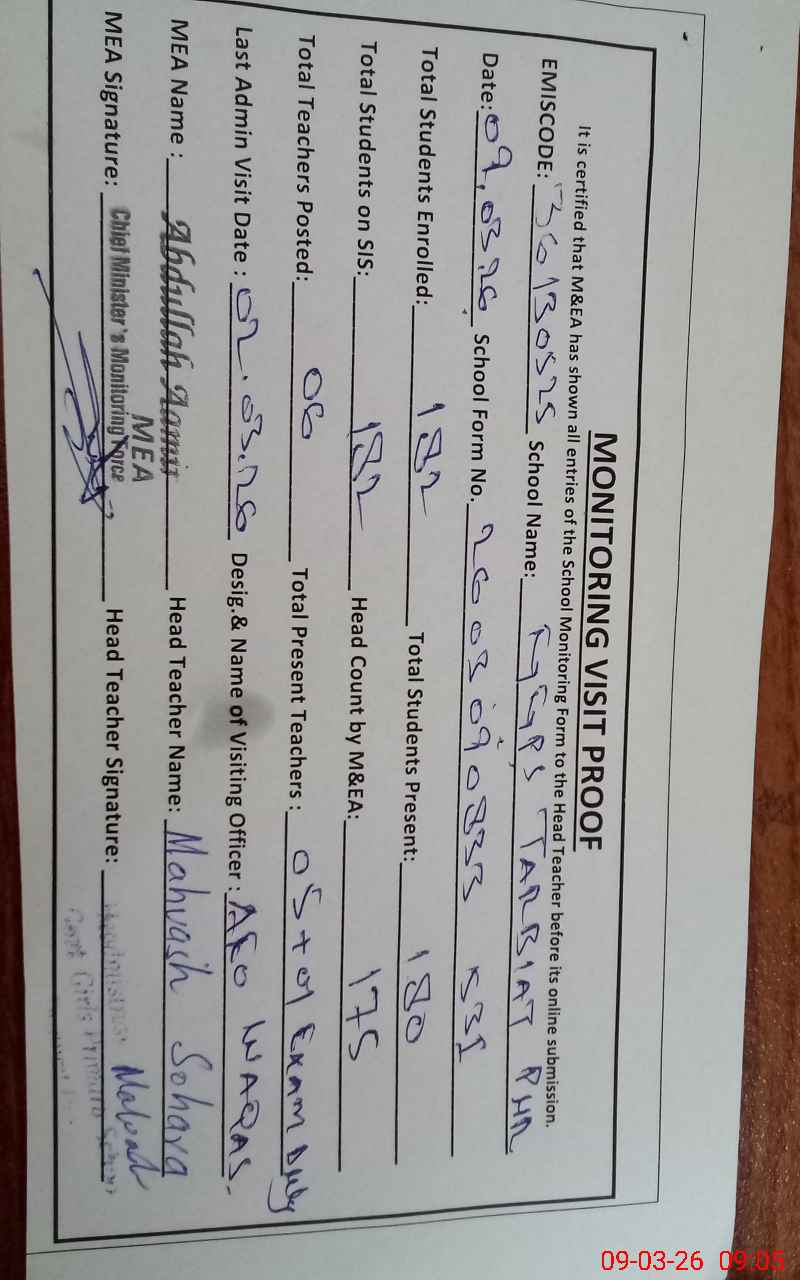 MONITORING VISIT PROOF
It is certified that M&EA has shown all entries of the School Monitoring Form to the Head Teacher before its online submission.
EMISCODE: 36130525 School Name: GGPS TARBIAT PHR
Date: 09.03.26 School Form No. 2603090833 531
Total Students Enrolled: 182 Total Students Present: 180
Total Students on SIS: 182 Head Count by M&EA: 175
Total Teachers Posted: 06 Total Present Teachers : 05+01 Exam Duty
Last Admin Visit Date : 02.03.26 Desig.& Name of Visiting Officer : AEO WAQAS.
MEA Name : Abdullah Aamir Head Teacher Name: Mahvash Sohara
MEA
MEA Signature: Chief Minister's Monitoring Force Head Teacher Signature:
Govt: Girls Primary School
09-03-26 09:05